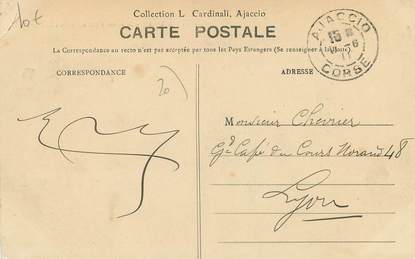 Collection L. Cardinali, Ajaccio
CARTE POSTALE
La Correspondance au recto n'est pas acceptée par tous les Pays Étrangers (Se renseigner à la Poste).
CORRESPONDANCE
ADRESSE
AJACCIO
15
CORSE
20
Monsieur Chevrier
Gd Café du Cours Morand 48
Lyon